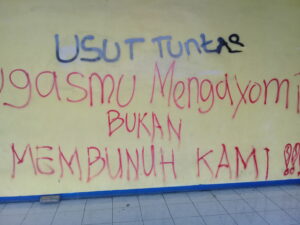 USUT TUNTAS
UGASMU MENGAYOMI
BUKAN
MEMBUNUH KAMI !!!